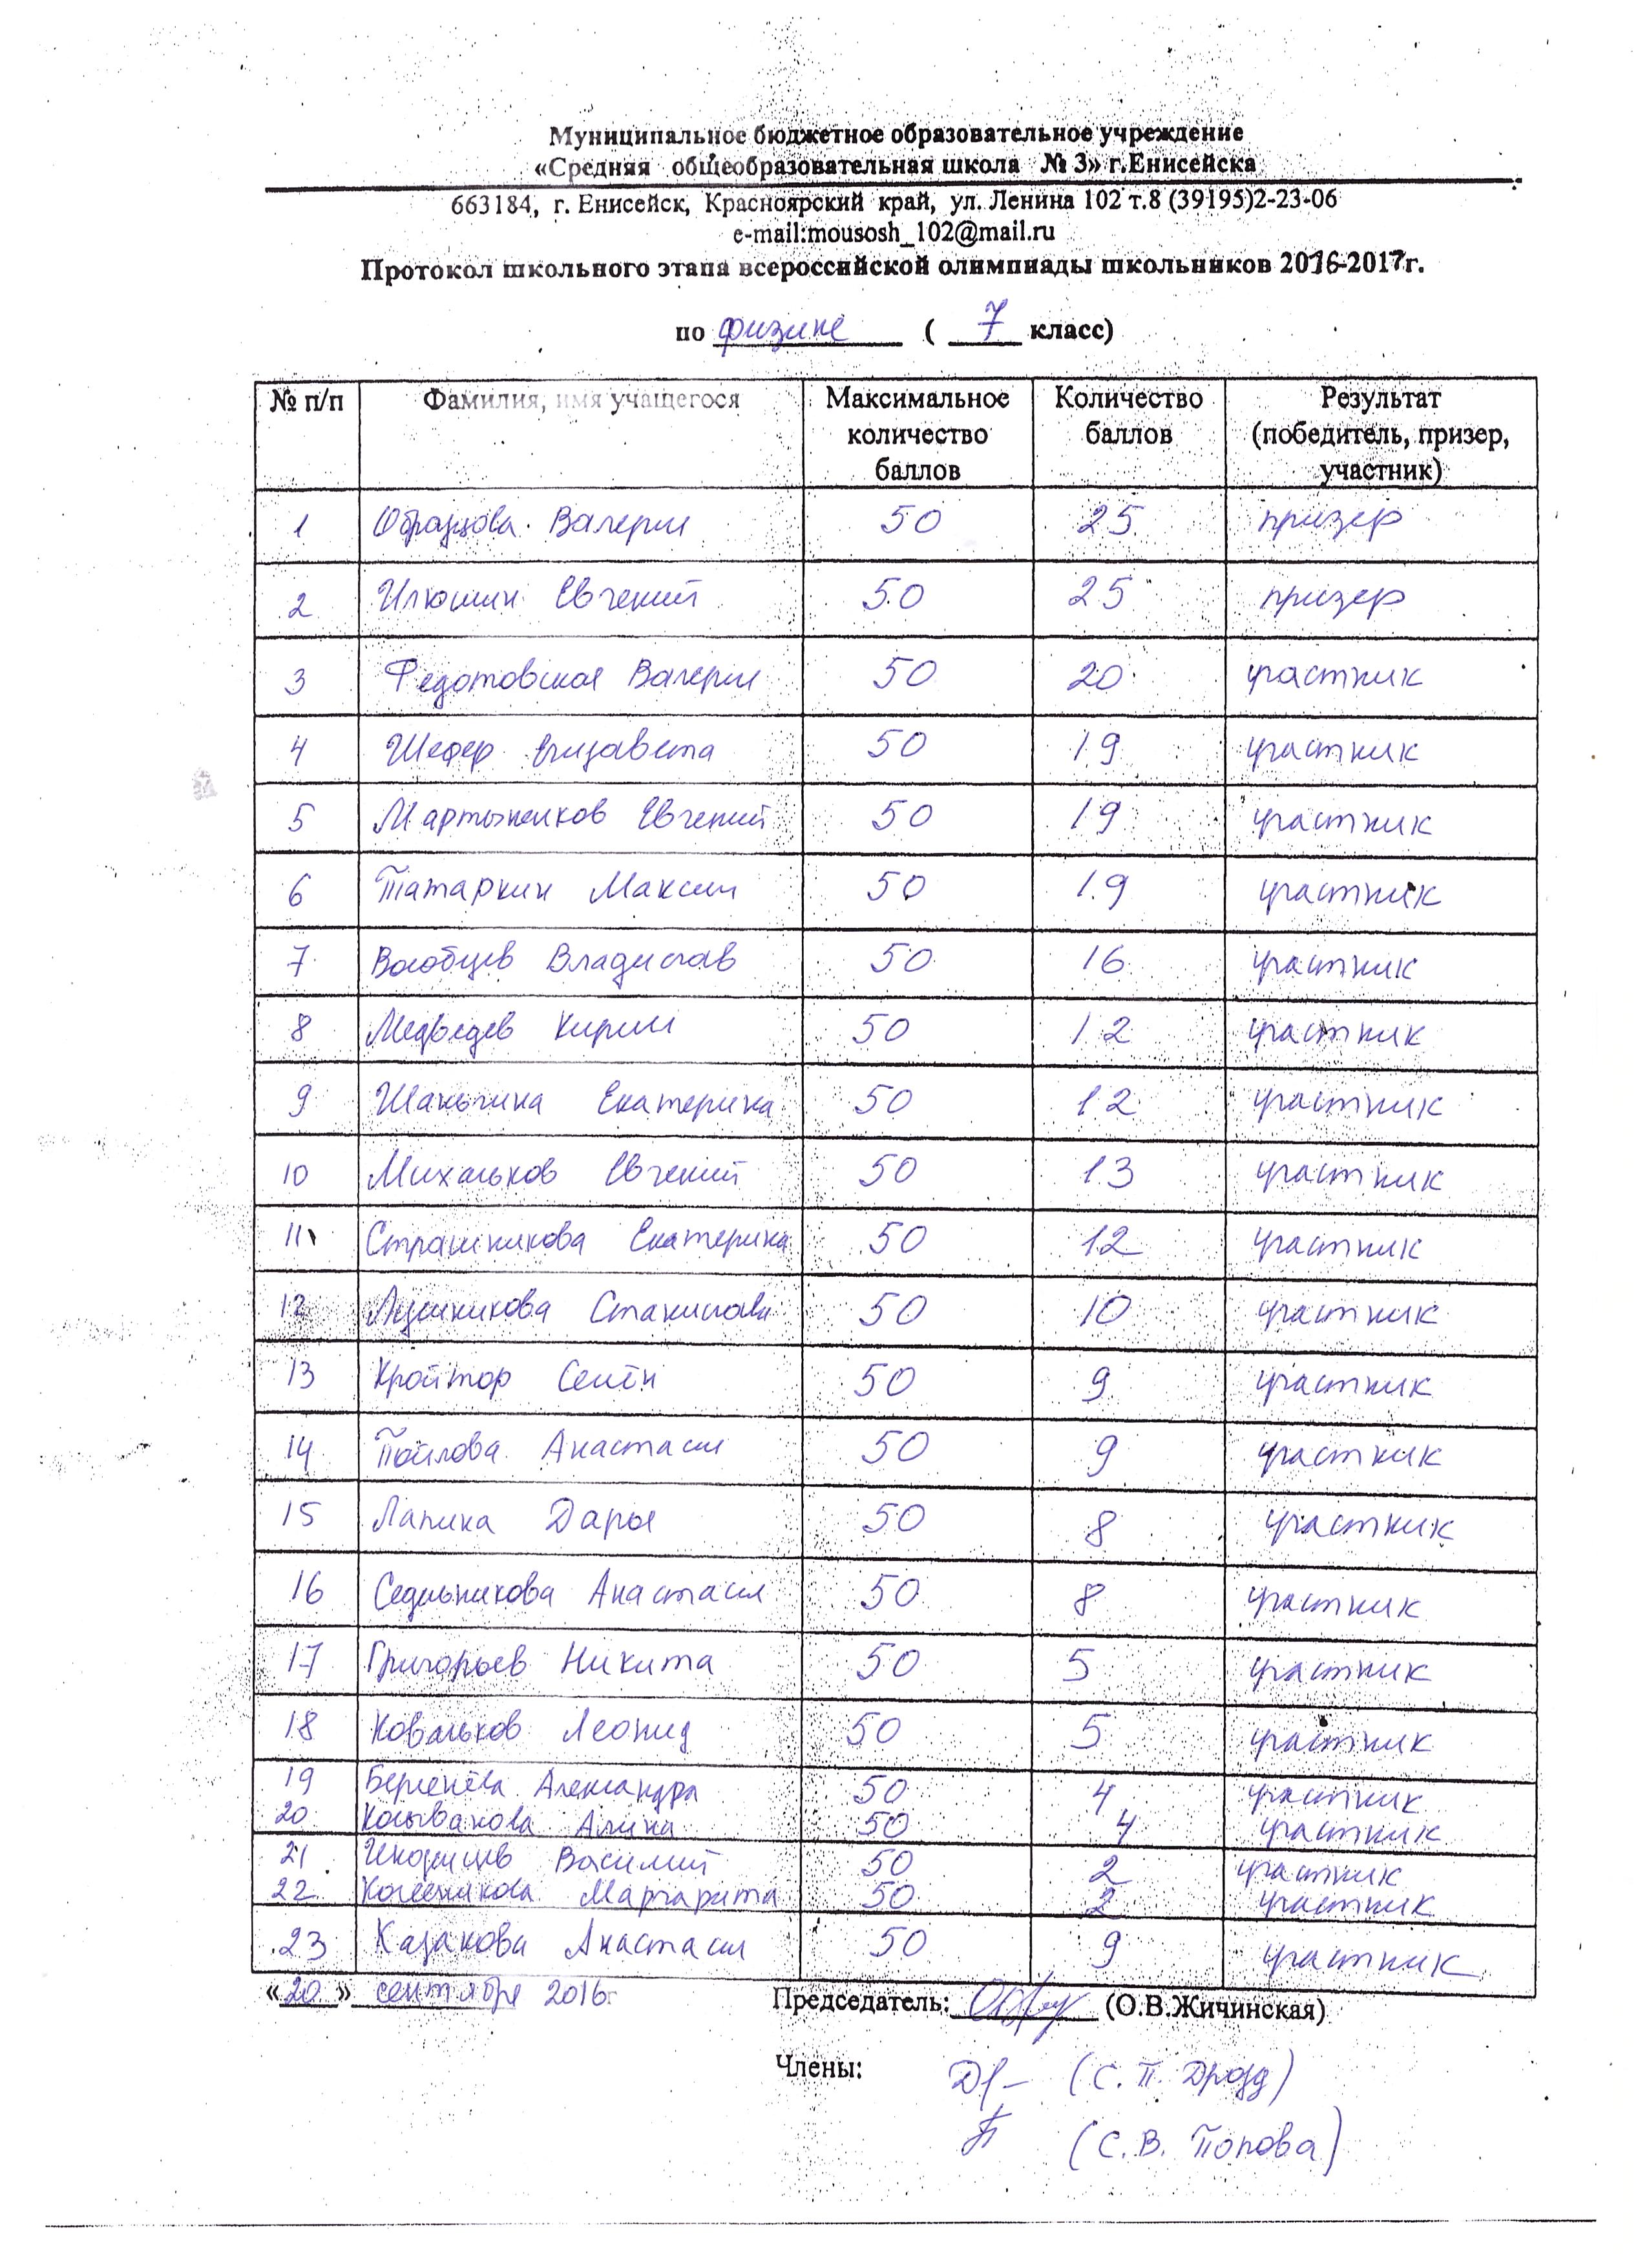 Муниципальное бюджетное образовательное учреждение
«Средняя общеобразовательная школа № 3» г.Енисейска
663184, г. Енисейск, Красноярский край, ул. Ленина 102 т.8 (39195)2-23-06
e-mail:mousosh_102@mail.ru
Протокол школьного этапа всероссийской олимпиады школьников 2016-2017г.
по физике ( 7 класс)
№ п/п Фамилия, имя учащегося Максимальное количество баллов Количество баллов Результат (победитель, призер, участник)
1 Образцова Валерия 50 25 призер
2 Илюшин Евгений 50 25 призер
3 Федотовская Валерия 50 20 участник
4 Шефер Елизавета 50 19 участник
5 Мартынюков Евгений 50 19 участник
6 Татаркин Максим 50 19 участник
7 Владислав 50 16 участник
8 Медведев Кирилл 50 12 участник
9 Шаньгина Екатерина 50 12 участник
10 Михальков Евгений 50 13 участник
11 Страшникова Екатерина 50 12 участник
12 Лушникова Станислава 50 10 участник
13 Кройтор Семён 50 9 участник
14 Анастасия 50 9 участник
15 Лапина Дарья 50 8 участник
16 Седельникова Анастасия 50 8 участник
17 Григорьев Никита 50 5 участник
18 Ковальков Леонид 50 5 участник
19 Берсенёва Александра 50 4 участник
20 Колыванова Алина 50 4 участник
21 Василий 50 2 участник
22 Колесникова Маргарита 50 2 участник
23 Казакова Анастасия 50 9 участник
«20» сентября 2016г Председатель: (О.В.Жичинская)
Члены: (С. П. Дрозд)
(С. В. Попова)